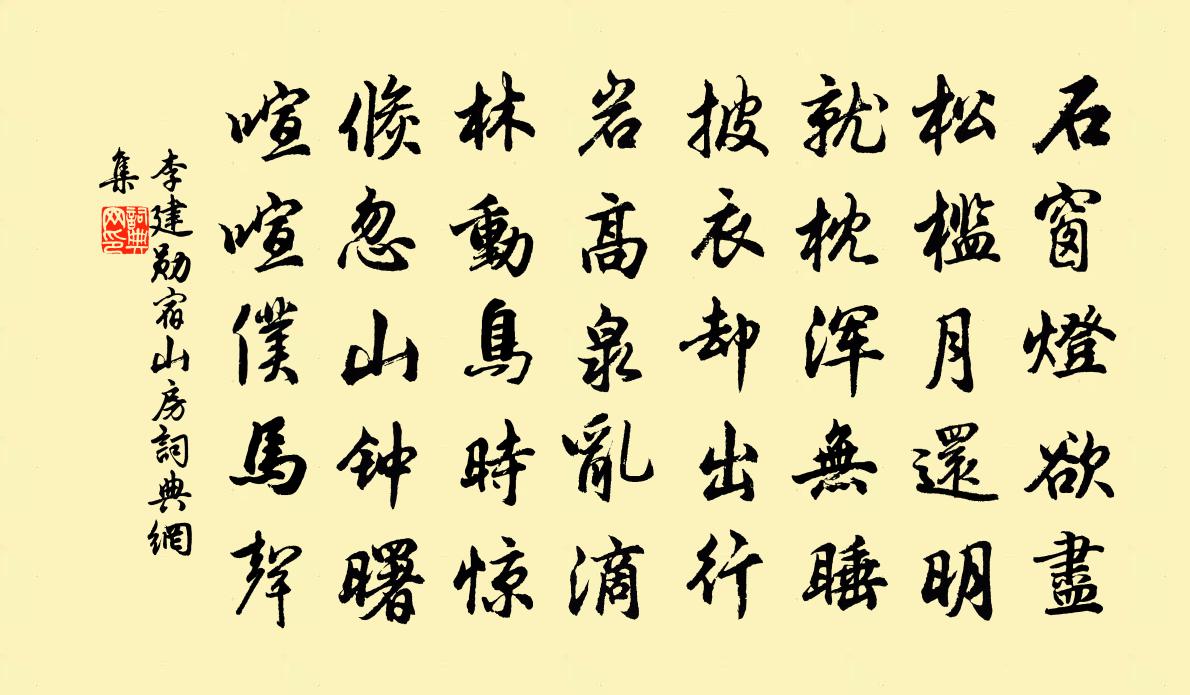 石窗燈欲盡
松檻月還明
就枕浑無睡
披衣却出行
岩高泉亂滴
林動鳥時惊
倏忽山钟曙
喧喧僕馬聲
李建勋宿山房詞典網
集
詞典
网印